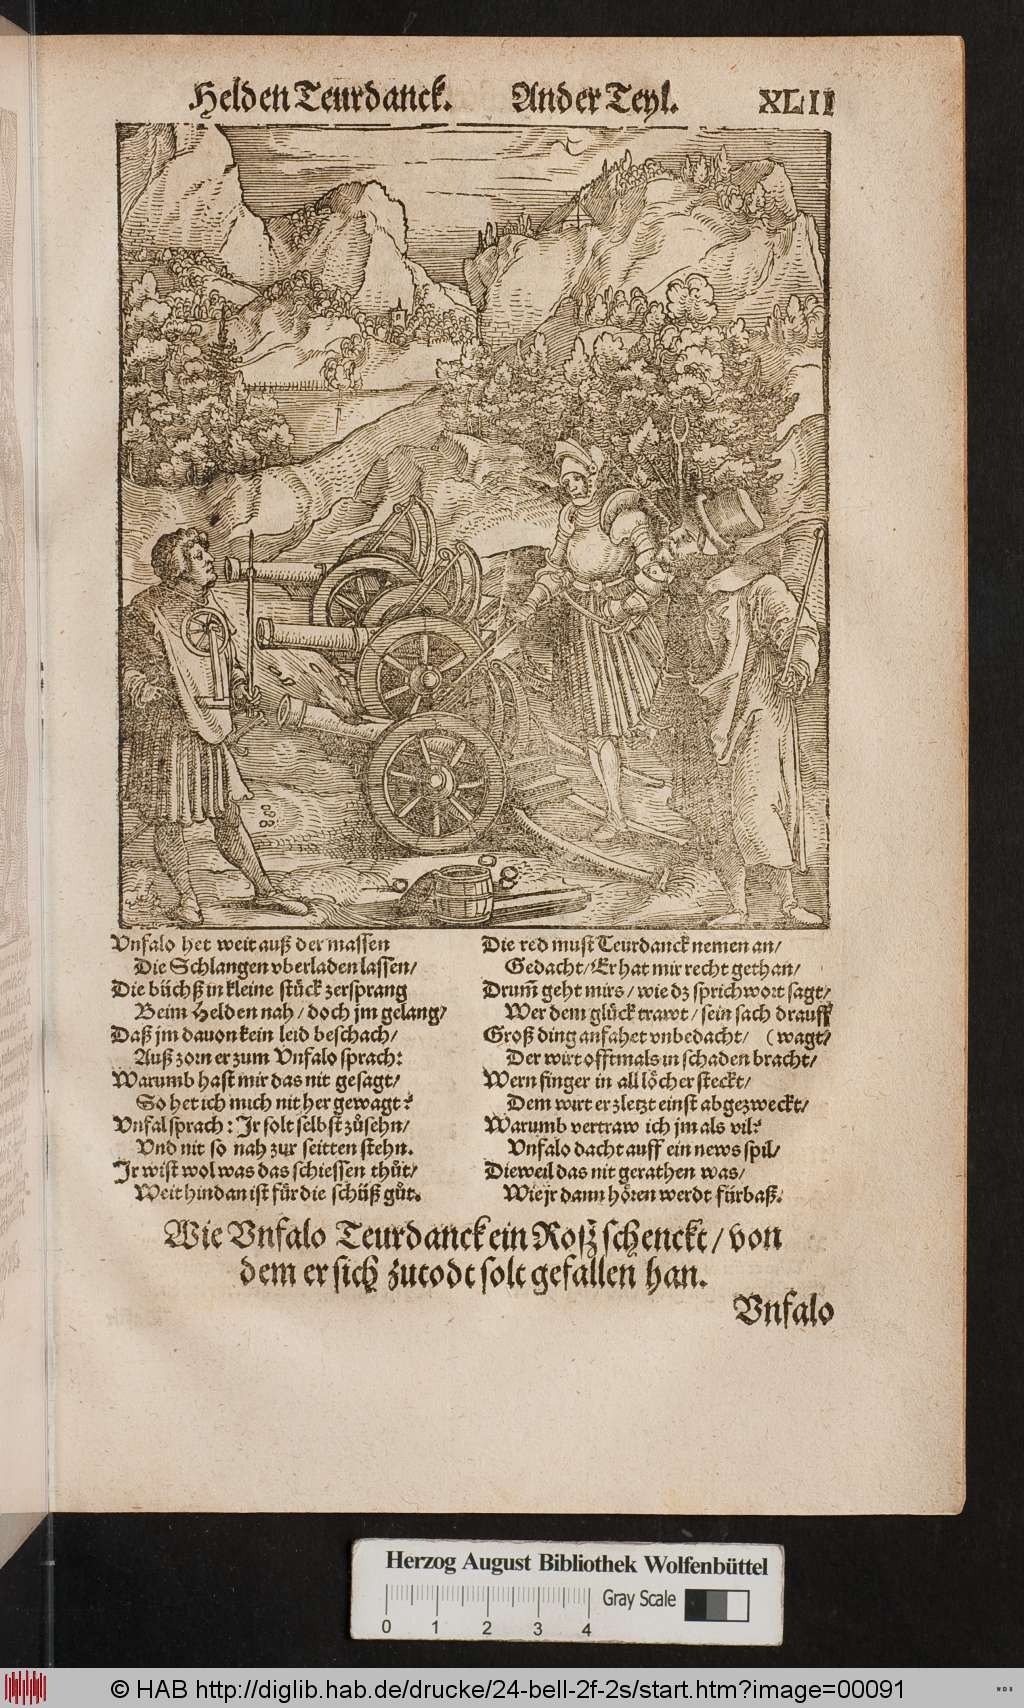 Helden Teurdanck. Ander Teyl. XLII
Vnfalo het weit auß der massen
Die Schlangen vberladen lassen/
Die büchß in kleine stück zersprang
Beim Helden nah/ doch jm gelang/
Daß jm dauon kein leid beschach/
Auß zorn er zum Vnfalo sprach:
Warumb hast mir das nit gesagt/
So het ich mich nit her gewagt?
Vnfal sprach: Jr solt selbst zůsehn/
Vnd nit so nah zur seitten stehn.
Jr wist wol was das schiessen thůt/
Weit hindan ist für die schüß gůt.
Die red must Teurdanck nemen an/
Gedacht/ Er hat mir recht gethan/
Drum̃ geht mirs/ wie dz sprichwort sagt/
Wer dem glück trawt/ sein sach drauff
Groß ding anfahet vnbedacht/ (wagt/
Der wirt offtmals in schaden bracht/
Wern finger in all löcher steckt/
Dem wirt er zletzt einst abgezweckt/
Warumb vertraw ich jm als vil?
Vnfalo dacht auff ein news spil/
Dieweil das nit gerathen was/
Wie jr dann hören werdt fürbaß.
Wie Vnfalo Teurdanck ein Roß schenckt/ von
dem er sich zutodt solt gefallen han.
Vnfalo
Herzog August Bibliothek Wolfenbüttel
0 1 2 3 4 Gray Scale
© HAB http://diglib.hab.de/drucke/24-bell-2f-2s/start.htm?image=00091